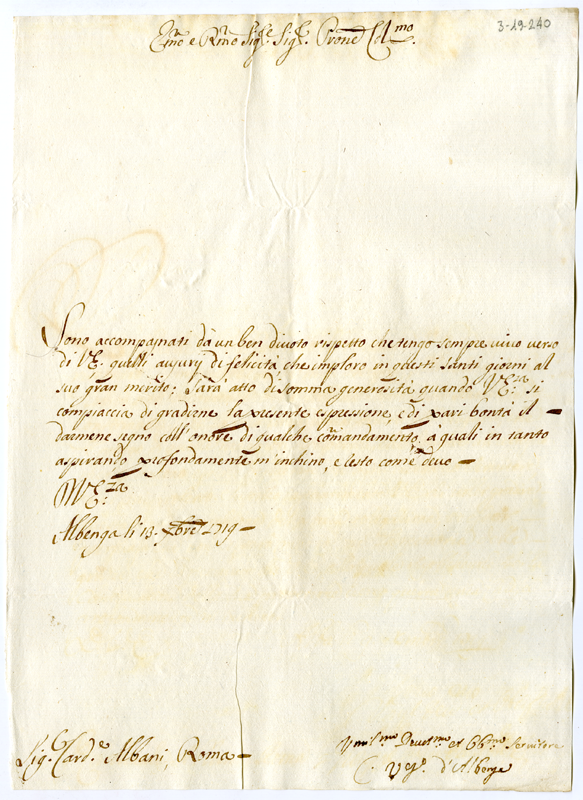 3-19-240
Em̄o e Rm̄o Sig.r Sig.r Prone Col.mo
Sono accompagnati da un ben divoto rispetto che tengo sempre vivo verso
di V.E. quelli augurj di felicità che imploro in questi santi giorni al
suo gran merito; sarà atto di somma generosità quando V.E.za si
compiaccia di gradirne la presente espressione, e di pari bontà il
darmene segno coll' onore di qualche com̄andamento, à quali in tanto
aspirando profondamente m'inchino, e resto come devo
V.E.za
Albenga li 13. Xbre 1719
Sig.r Card.e Albani, Roma
Vmil.mo Deuot.mo et Obb.mo Servitore
Ves.o d'Albenga